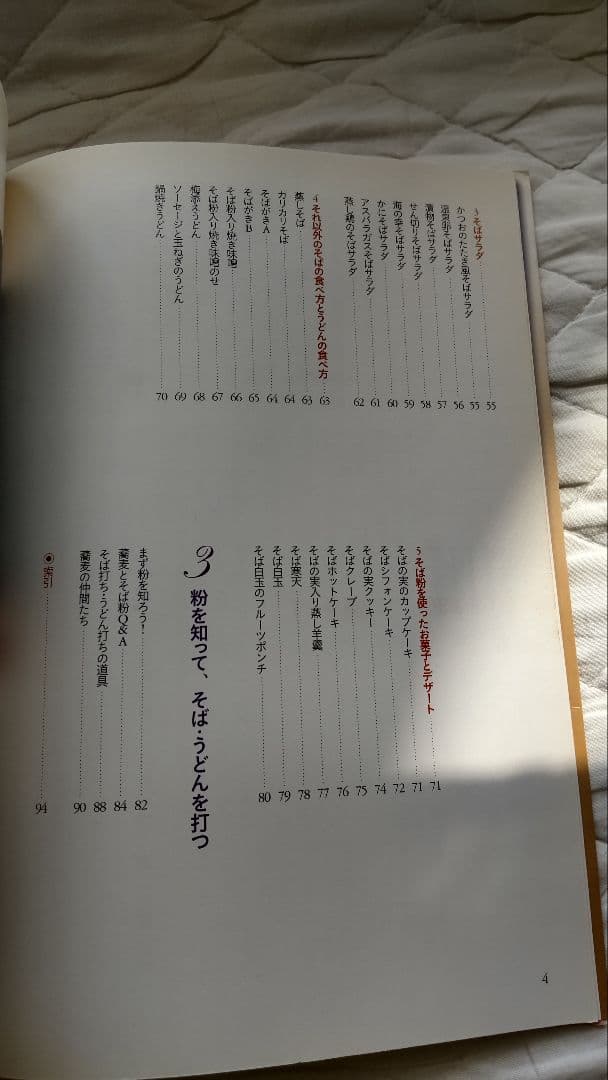 3 そばサラダ……55
かつおのたたき風そばサラダ……55
温泉卵そばサラダ……56
漬物そばサラダ……57
せん切りそばサラダ……58
海の幸そばサラダ……59
かにそばサラダ……60
アスパラガスそばサラダ……61
蒸し鶏のそばサラダ……62
4 それ以外のそばの食べ方とうどんの食べ方……63
蒸しそば……63
カリカリそば……64
そばがきA……64
そばがきB……65
そば粉入り焼き味噌……66
そば粉入り焼き味噌のせ……67
梅添えうどん……68
ソーセージと玉ねぎのうどん……69
鍋焼きうどん……70
5 そば粉を使ったお菓子とデザート……71
そばの実のカップケーキ……71
そばシフォンケーキ……72
そばの実クッキー……74
そばクレープ……75
そばホットケーキ……76
そばの実入り蒸し羊羹……77
そば寒天……78
そば白玉……79
そば白玉のフルーツポンチ……80
3 粉を知って、そば・うどんを打つ
まず粉を知ろう!……82
蕎麦とそば粉Q&A……84
そば打ち・うどん打ちの道具……88
蕎麦の仲間たち……90
◉索引……94
4